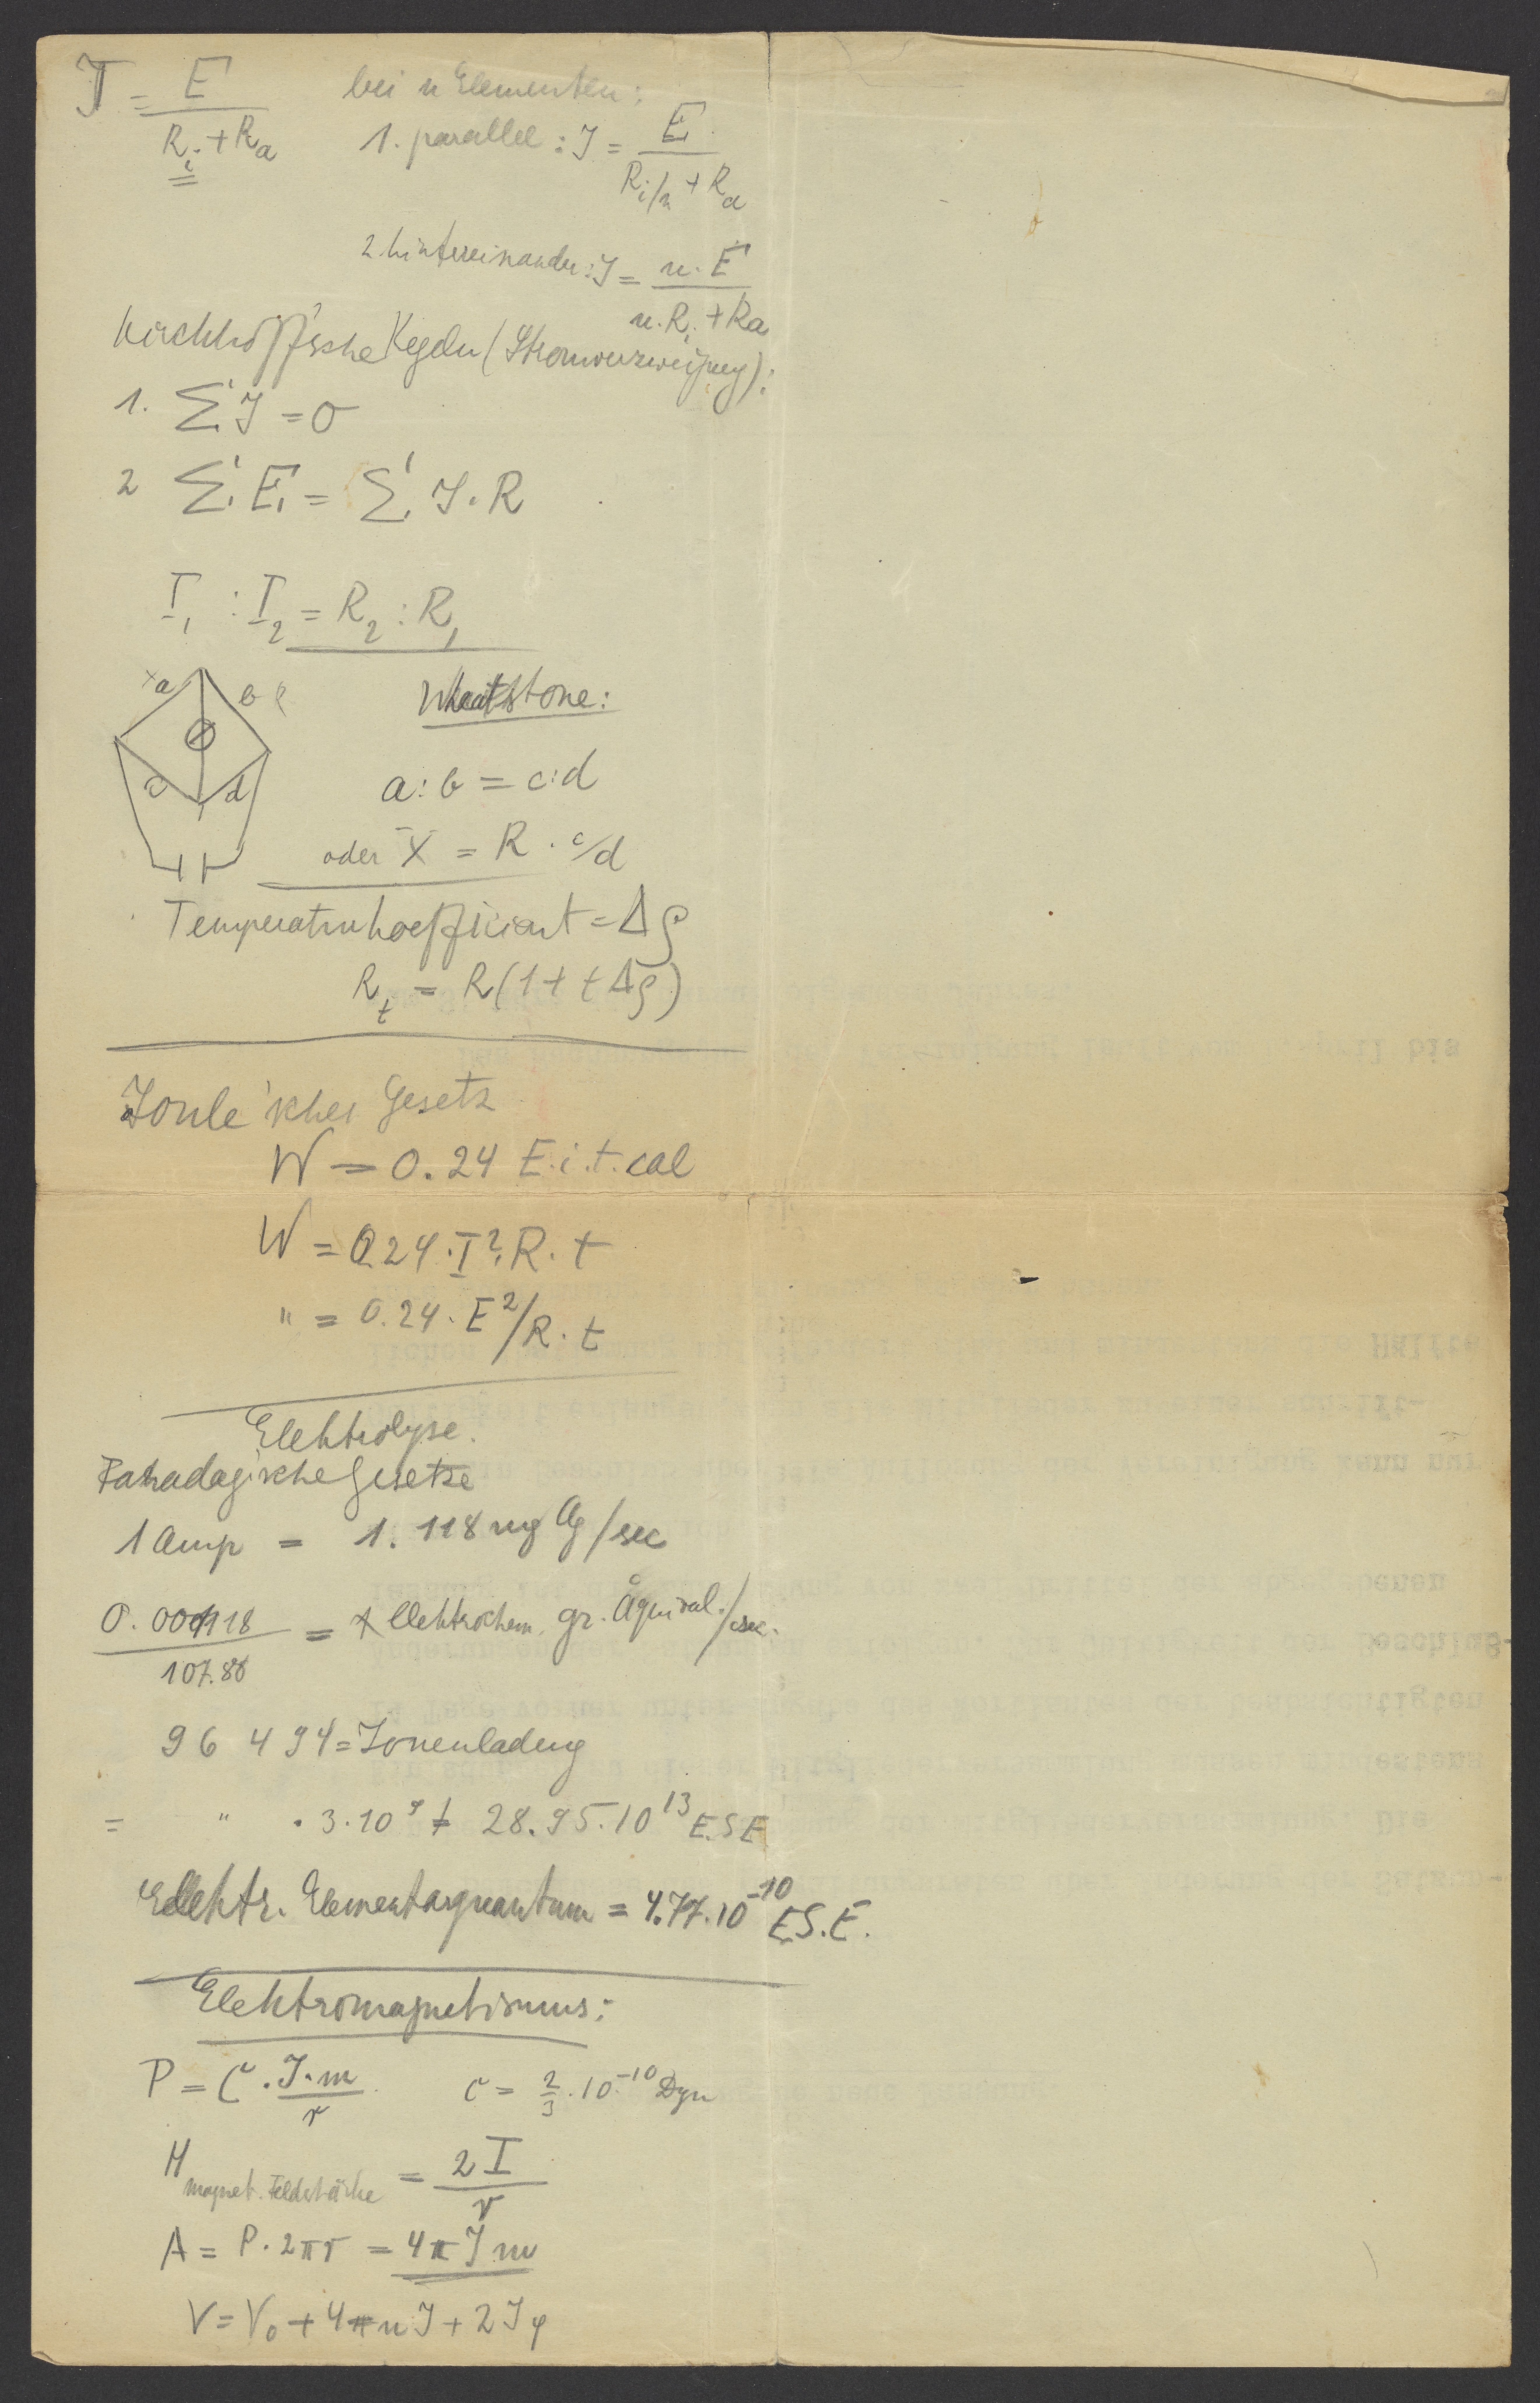 J = E / (R_i + R_a)
bei n Elementen:
1. parallel : J = E / (R_i/n + R_a)
2. hintereinander : J = n. E / (n. R_i + Ra)
Kirchhoff'sche Regeln (Stromverzweigung):
1. Σ J = 0
2 Σ E = Σ J. R
I_1 : I_2 = R_2 : R_1
x a b R
c d
Wheatstone:
a : b = c : d
oder X = R . c/d
Temperaturkoeffizient = Δρ
R_t = R (1 + t Δρ)
Joule'sches Gesetz
W = 0.24 E. i. t. cal
W = 0.24 . I². R. t
" = 0.24. E²/R . t
Elektrolyse.
Faraday'sche Gesetze
1 Amp = 1.118 mg Ag/sec
0.001118 / 107.88 = elektrochem. gr. Äquival./sec.
96 494 = Ionenladung
= " . 3.10⁹ = 28.95.10¹³ E.S.E
Elektr. Elementarquantum = 4.77.10⁻¹⁰ E.S.E.
Elektromagnetismus:
P = C . J. m / r C = 2/3 . 10⁻¹⁰ Dyn
H magnet. Feldstärke = 2 I / r
A = P. 2πr = 4π J m
V = V_0 + 4π n J + 2 J φ